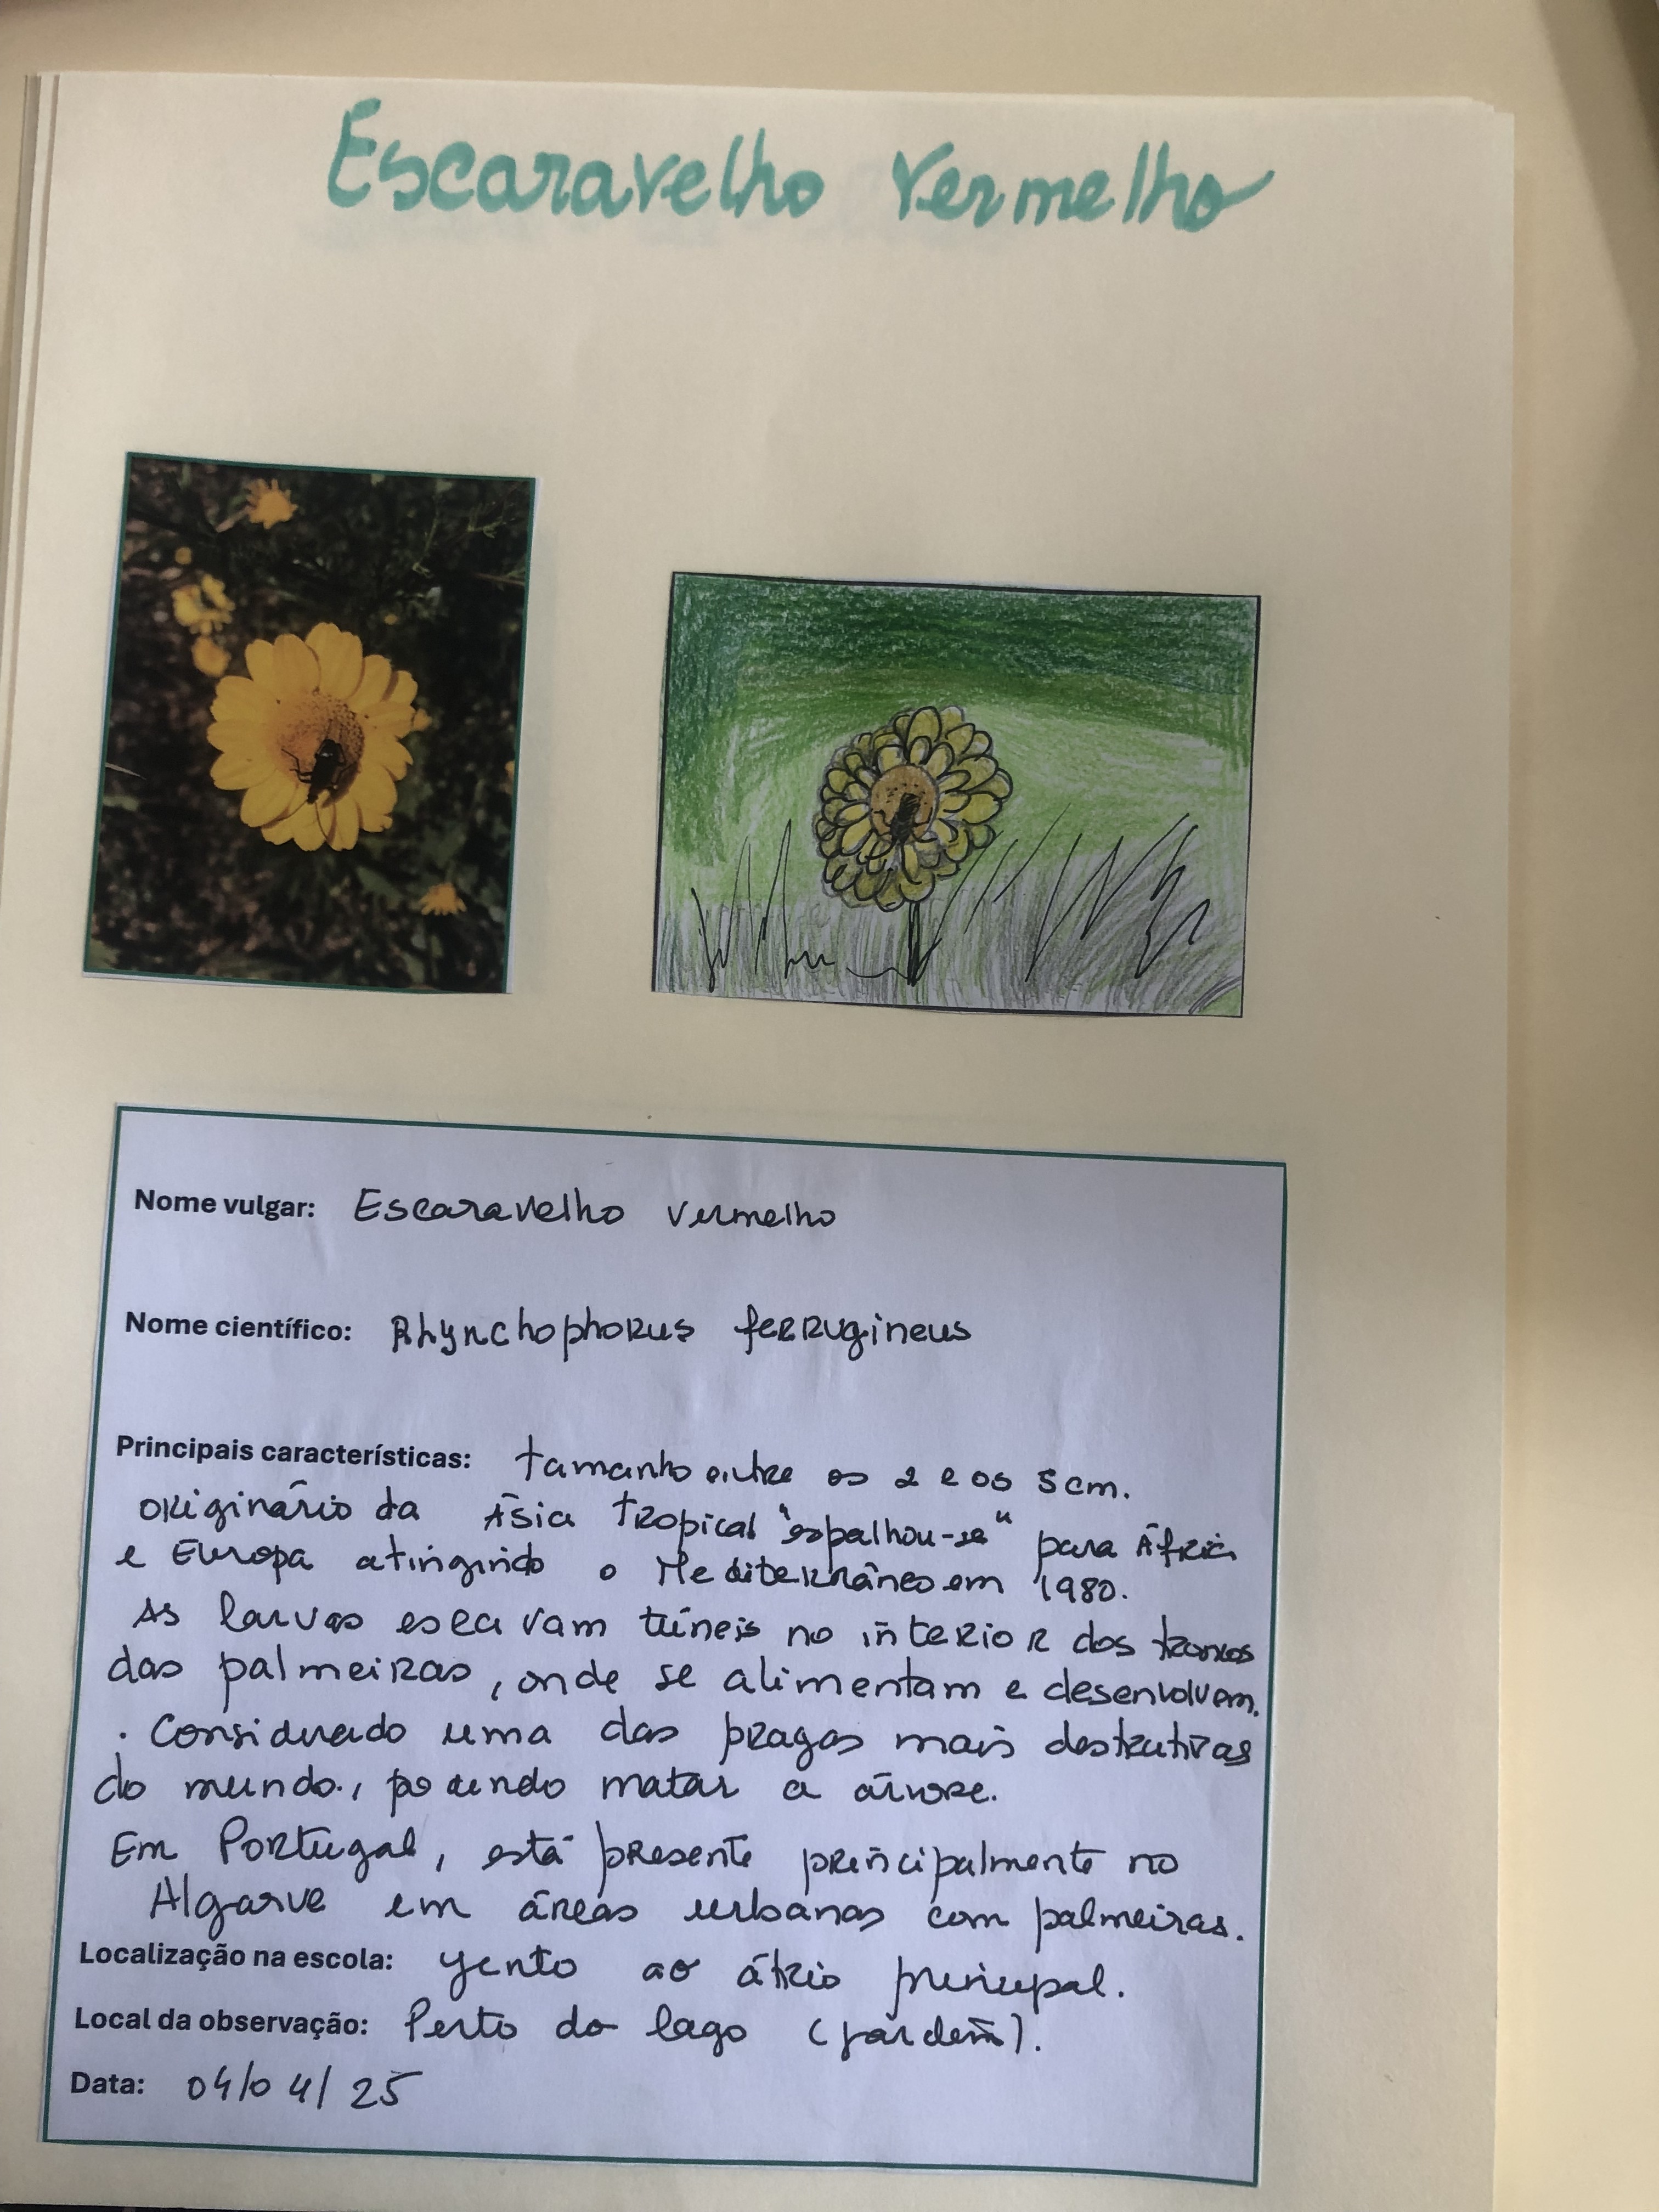 Escaravelho Vermelho
Nome vulgar: Escaravelho vermelho
Nome científico: Rhynchophorus ferrugineus
Principais características: tamanho entre os 2 e os 5 cm.
originário da Ásia tropical "espalhou-se" para África
e Europa atingindo o Mediterrâneo em 1980.
As larvas escavam túneis no interior dos troncos
das palmeiras, onde se alimentam e desenvolvem.
. Considerado uma das pragas mais destrutivas
do mundo, podendo matar a árvore.
Em Portugal, está presente principalmente no
Algarve em áreas urbanas com palmeiras.
Localização na escola: Junto ao átrio principal.
Local da observação: Perto do lago (jardim).
Data: 04/04/25